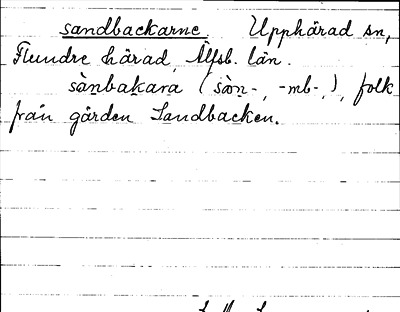 sandbackarne. Upphärad sn,
Flundre härad, Älfsb. län.
sànbakara (sàn-, -mb-,), folk
från gården Sandbacken.